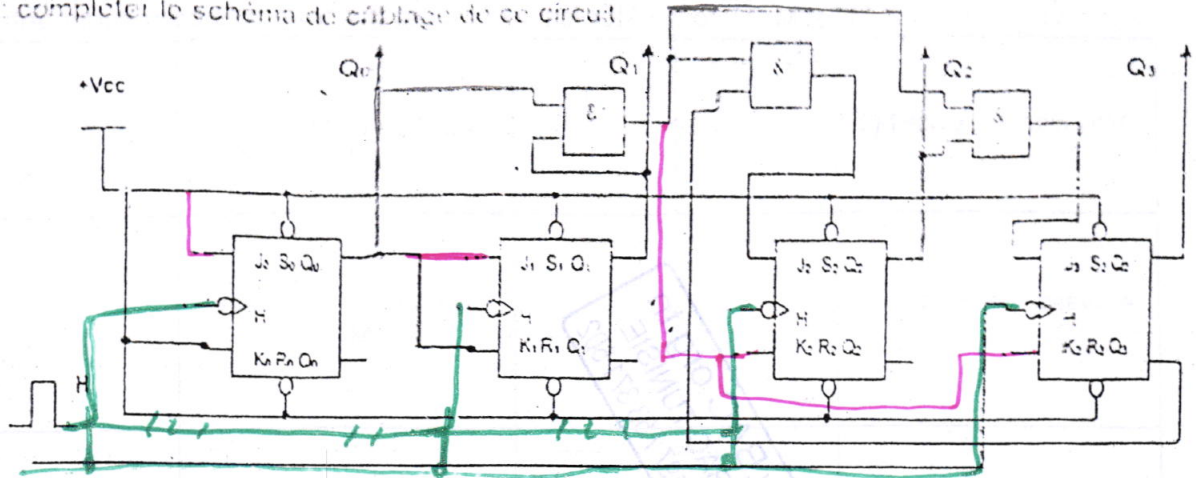 : compléter le schéma de câblage de ce circuit
+Vcc
Q0
Q1
&
Q2
&
Q3
&
J0 S0 Q0
H
K0 R0 Q0
J1 S1 Q1
H
K1 R1 Q1
J2 S2 Q2
H
K2 R2 Q2
J3 S3 Q3
H
K3 R3 Q3
H